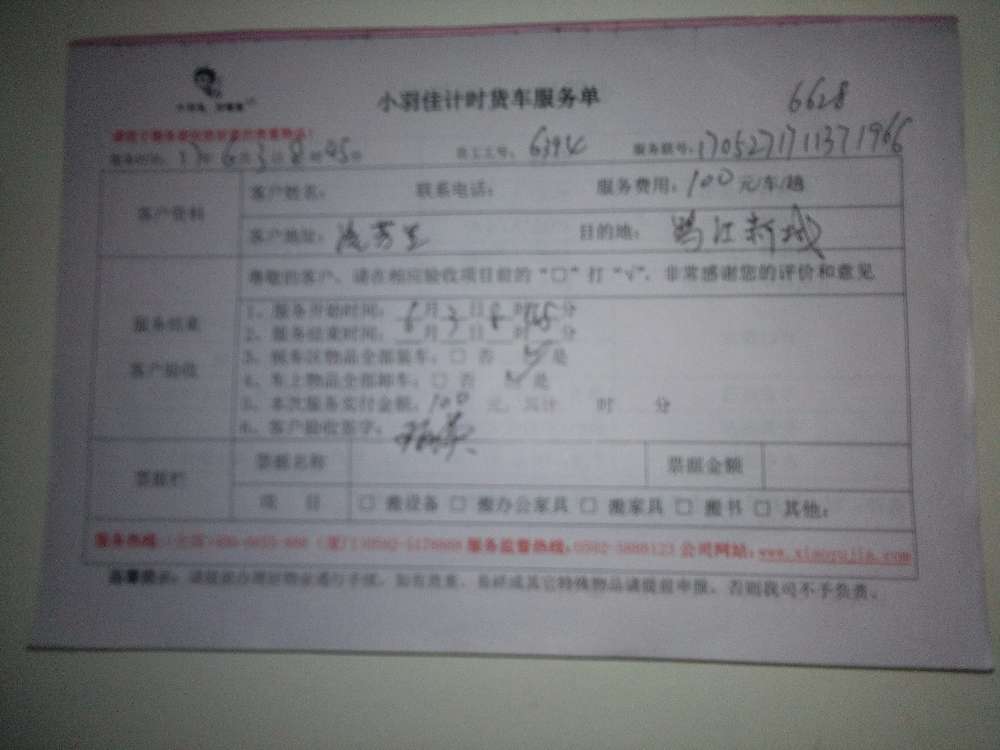 小羽佳计时货车服务单
6628
服务时间：17年6月3日8时45分 员工工号：6394 服务联号：1705271711371966
客户资料
客户姓名： 联系电话： 服务费用：100元/车/趟
客户地址： 目的地：鹭江新城
尊敬的客户，请在相应验收项目前的“□”打“√”，非常感谢您的评价和意见
服务结束
客户验收
1、服务开始时间：6月3日8时45分
2、服务结束时间：月日时分
3、服务区物品全部装车：□ 否 √是
4、车上物品全部卸车：□ 否 √是
5、本次服务实付金额：100元，共计 时 分
6、客户验收签字：
票据栏
票据名称 票据金额
项 目 □ 搬设备 □ 搬办公家具 □ 搬家具 □ 搬书 □ 其他：
服务热线： 服务监督热线：0592-5888123 公司网站：www.xiaoyujia.com
温馨提示： 如有贵重、易碎或其它特殊物品请提前申报，否则我司不予负责。